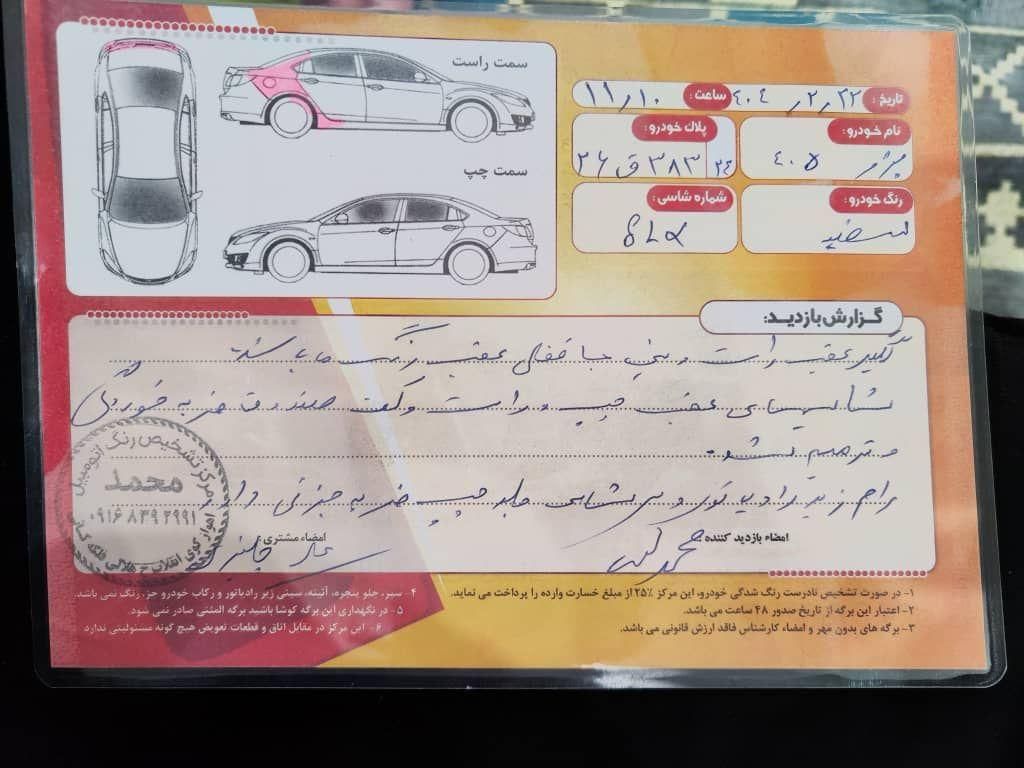 سمت راست
سمت چپ
تاریخ: ۴۰۴/۲/۲۲ ساعت: ۱۱/۱۰
نام خودرو: پژو ۴۰۵
پلاک خودرو: ۲۴ ۳۸۳ ق ۲۶
رنگ خودرو: سفید
شماره شاسی:
گزارش بازدید:
گلگیر عقب راست و سینی جا قفلی عقب رنگ می‌باشد.
شاسیهای عقب چپ و راست و کف صندوق ضربه خوردگی
و ترمیم شد.
رام زیر رادیاتور و سرشاسی جلو چپ ضربه جزئی دارد
امضاء بازدید کننده:
امضاء مشتری:
مرکز تشخیص رنگ اتومبیل
محمد
۰۹۱۶ ۸۳۹ ۲۹۹۱
اهواز کوی انقلاب خ هلالی فلکه
۱- در صورت تشخیص نادرست رنگ شدگی خودرو، این مرکز ۲۵٪ از مبلغ خسارت وارده را پرداخت می نماید.
۲- اعتبار این برگه از تاریخ صدور ۴۸ ساعت می باشد.
۳- برگه های بدون مهر و امضاء کارشناس فاقد ارزش قانونی می باشد.
۴- سپر، جلو پنجره، آئینه، سینی زیر رادیاتور و رکاب خودرو جزء رنگ نمی باشد.
۵- در نگهداری این برگه کوشا باشید برگه المثنی صادر نمی شود.
۶- این مرکز در مقابل اتاق و قطعات تعویض هیچ گونه مسئولیتی ندارد